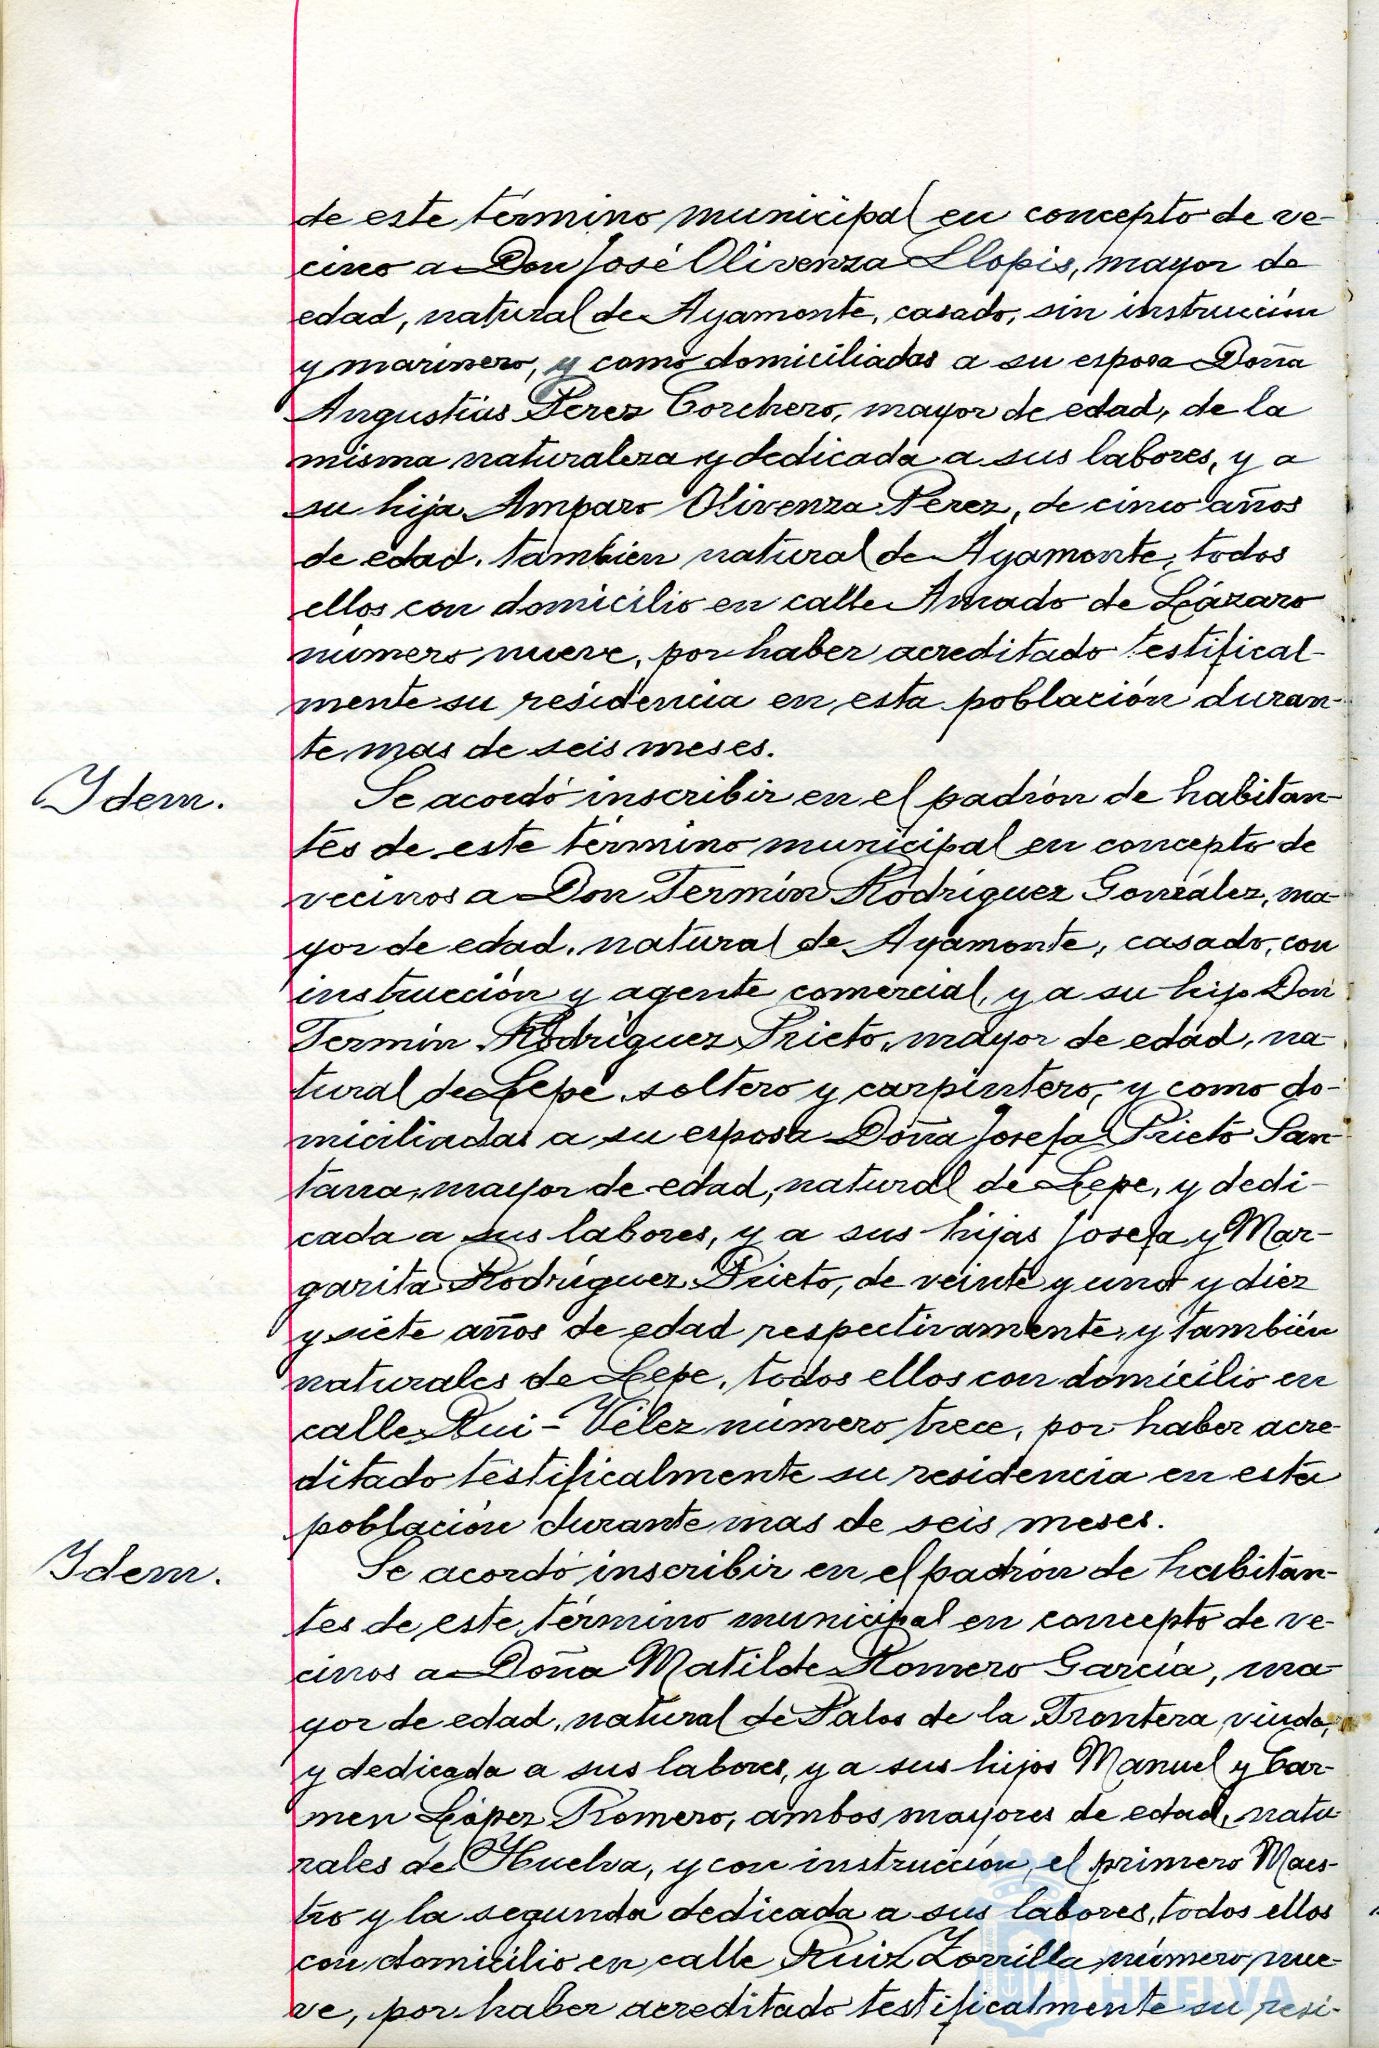 de este término municipal en concepto de ve-
cino a Don José Olivenza Llopis, mayor de
edad, natural de Ayamonte, casado, sin instrucción
y marinero, y como domiciliadas a su esposa Doña
Angustias Perez Corchero, mayor de edad, de la
misma naturaleza y dedicada a sus labores, y a
su hija Amparo Olivenza Perez, de cinco años
de edad, tambien natural de Ayamonte, todos
ellos con domicilio en calle Amado de Lázaro
número nueve, por haber acreditado testifical-
mente su residencia en esta población duran-
te mas de seis meses.
Idem.
Se acordó inscribir en el padrón de habitan-
tes de este término municipal en concepto de
vecinos a Don Fermín Rodríguez González, ma-
yor de edad, natural de Ayamonte, casado, con
instrucción y agente comercial, y a su hijo Don
Fermín Rodríguez Prieto, mayor de edad, na-
tural de Lepe, soltero y carpintero, y como do-
miciliadas a su esposa Doña Josefa Prieto San-
tana, mayor de edad, natural de Lepe, y dedi-
cada a sus labores, y a sus hijas Josefa y Mar-
garita Rodríguez Prieto, de veinte y uno y diez
y siete años de edad respectivamente, y también
naturales de Lepe, todos ellos con domicilio en
calle Rui-Vélez número trece, por haber acre-
ditado testificalmente su residencia en esta
población durante mas de seis meses.
Idem.
Se acordó inscribir en el padrón de habitan-
tes de este término municipal en concepto de ve-
cinos a Doña Matilde Romero García, ma-
yor de edad, natural de Palos de la Frontera, viuda,
y dedicada a sus labores, y a sus hijos Manuel y Car-
men López Romero, ambos mayores de edad, natu-
rales de Huelva, y con instrucción, el primero Maes-
tro y la segunda dedicada a sus labores, todos ellos
con domicilio en calle Ruiz Zorrilla número nue-
ve, por haber acreditado testificalmente su resi-
HUELVA